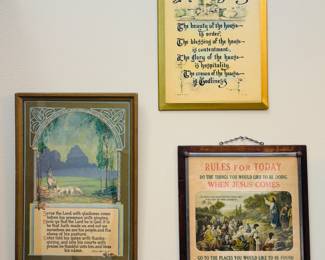 The beauty of the house
is order;
The blessing of the house
is contentment;
The glory of the house
is hospitality
The crown of the house
is Godliness
Serve the Lord with gladness come
before his presence with singing.
Know ye that the Lord he is God, it is
he that hath made us and not we
ourselves we are his people and the
sheep of his pasture.
Enter into his gates with thanks-
giving and into his courts with
praise be thankful unto him and bless
his name.
RULES FOR TODAY
DO THE THINGS YOU WOULD LIKE TO BE DOING
WHEN JESUS COMES
GO TO THE PLACES YOU WOULD LIKE TO BE FOUND